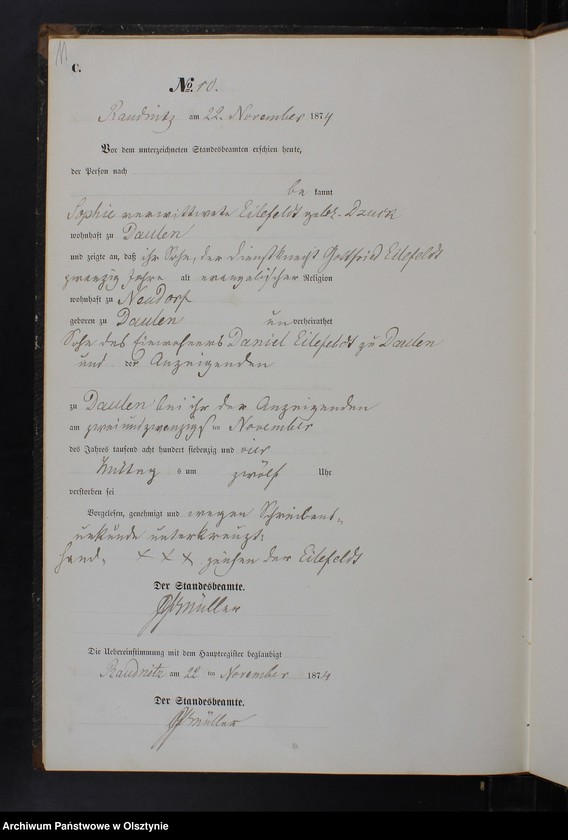 11
C.
No. 10.
Raudnitz am 22. November 1874
Vor dem unterzeichneten Standesbeamten erschien heute,
der Person nach
be kannt
Sophie verwittwete Eilefeldt gebr.
wohnhaft zu Daulen
und zeigte an, daß ihr Sohn, der Dienstknecht Gottfried Eilefeldt
zwanzig Jahre alt evangelischer Religion
wohnhaft zu Neudorf
geboren zu Daulen un verheirathet
Sohn des Einwohners Daniel Eilefeldt zu Daulen
und der Anzeigenden
zu Daulen bei ihr der Anzeigenden
am zweiundzwanzigst en November
des Jahres tausend acht hundert siebenzig und vier
Mittag s um zwölf Uhr
verstorben sei
Vorgelesen, genehmigt und wegen Schreibens-
unkunde unterkreuzt:
Hand- × × × zeichen der Eilefeldt
Der Standesbeamte.
müller
Die Uebereinstimmung mit dem Hauptregister beglaubigt
Raudnitz am 22 ten November 1874
Der Standesbeamte.
müller
Archiwum Państwowe w Olsztynie